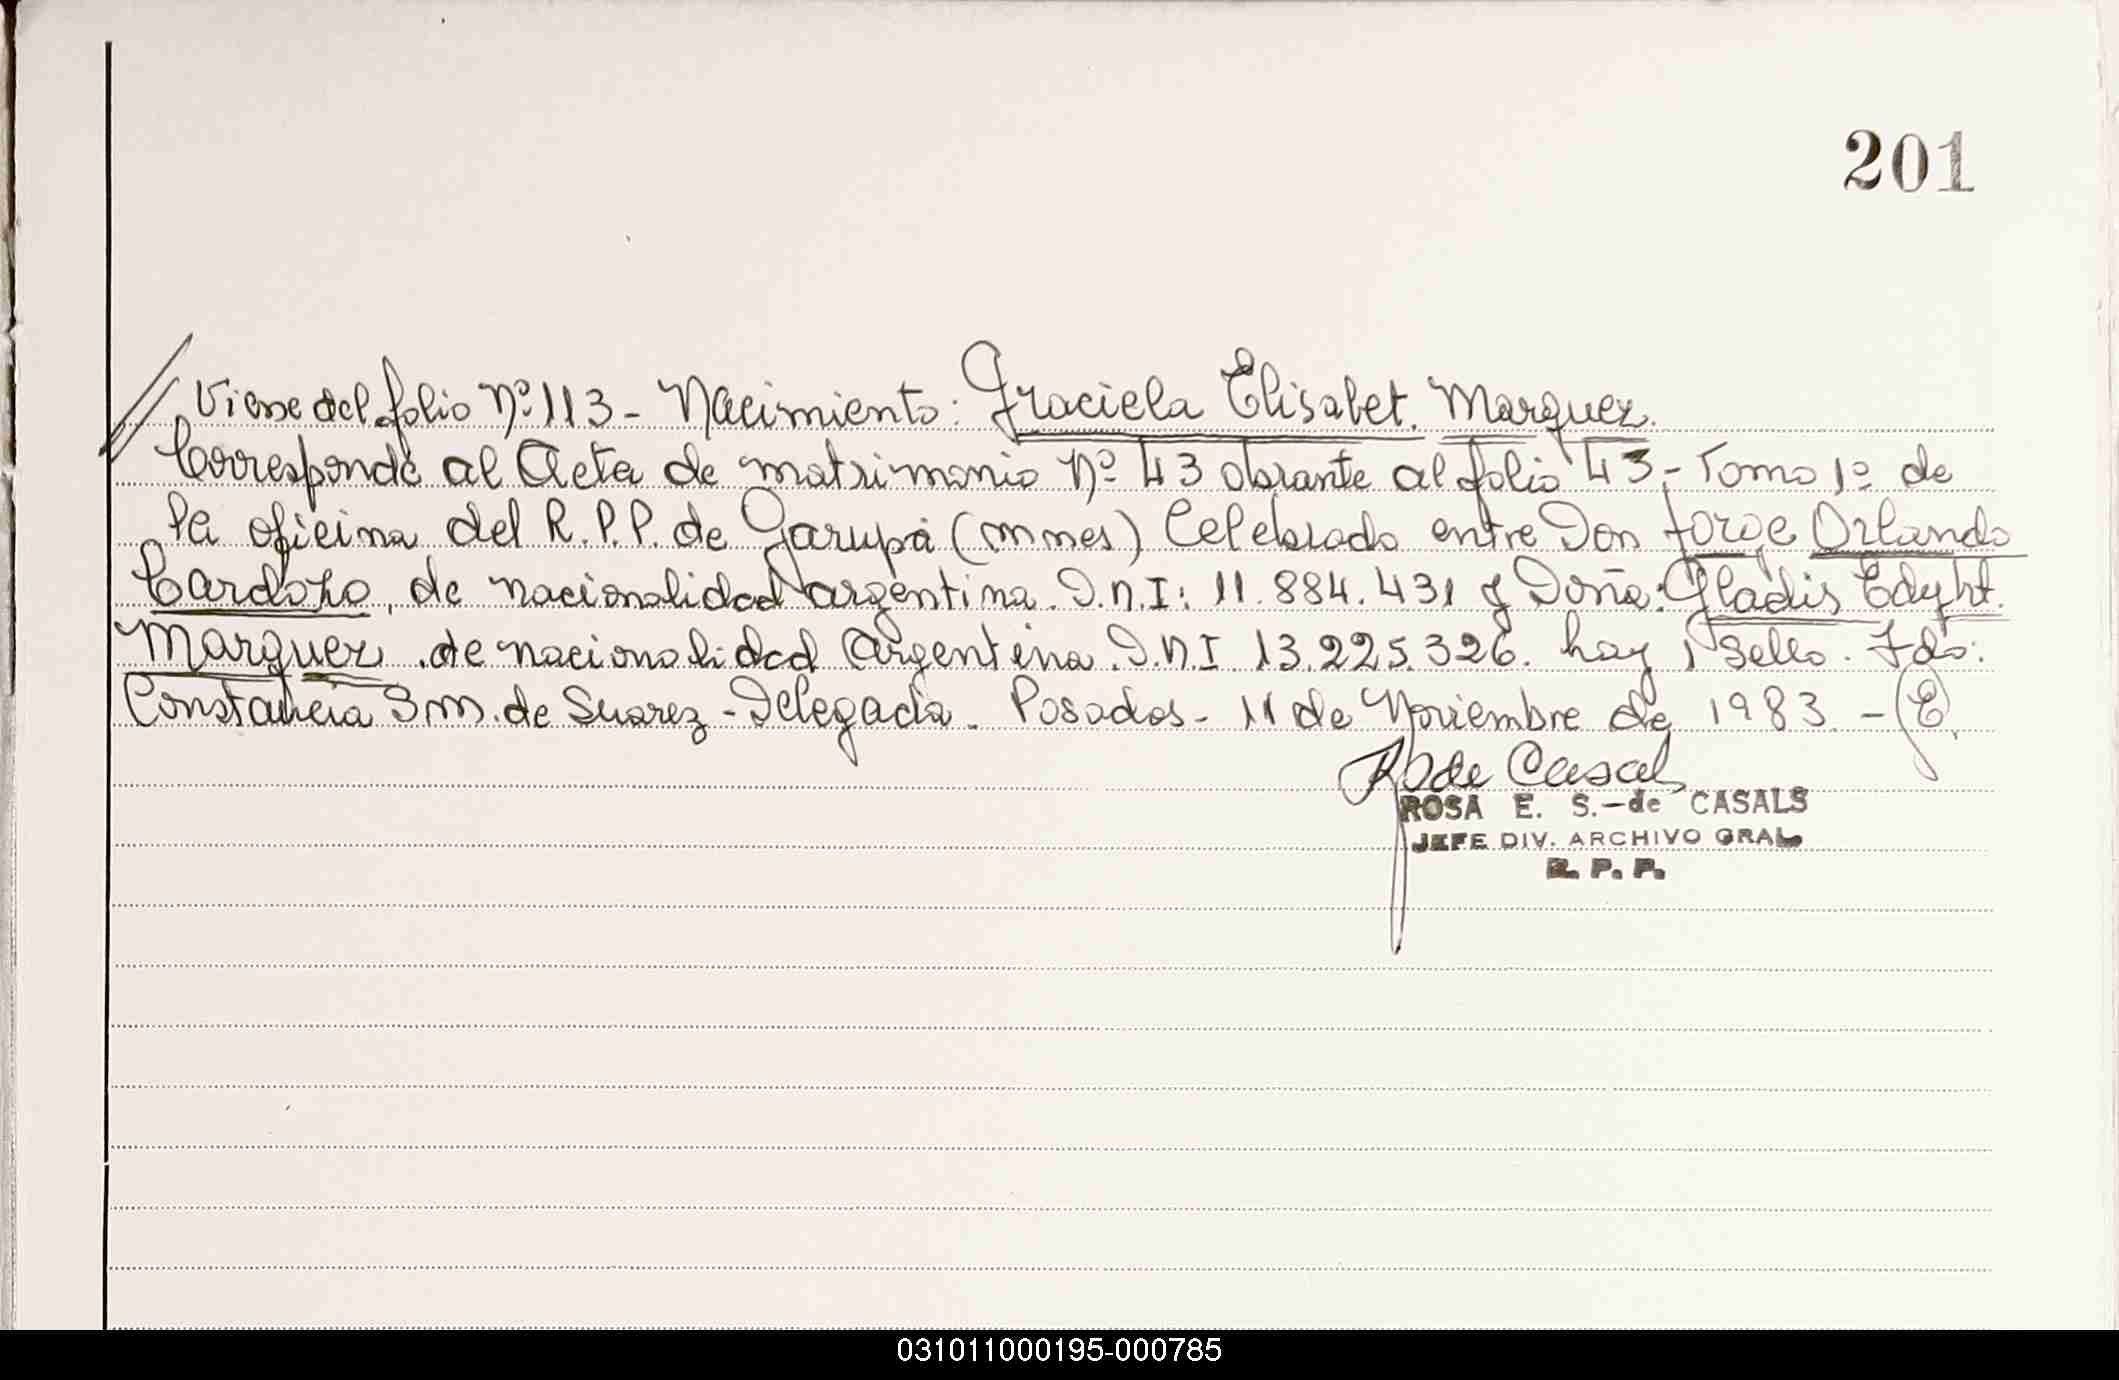 201
// Viene del folio Nº 113 - Nacimiento: Graciela Elisabet. Marquez.
Corresponde al Acta de matrimonio Nº 43 obrante al folio 43,- Tomo 1º de
la oficina del R.P.P. de Garupá (mnes) Celebrado entre Don Jorge Orlando
Cardozo, de nacionalidad argentina. D.N.I: 11.884.431 y Doña: Gladis Edyht.
Marquez. de nacionalidad Argentina. D.N.I 13.225.326. hay 1 sello. Fdo:
Constancia B M. de Suarez - Delegada. Posadas - 11 de Noviembre de 1983. - (E).
R S de Casals
ROSA E. S.-de CASALS
JEFE DIV. ARCHIVO GRAL
R. P. P.
031011000195-000785